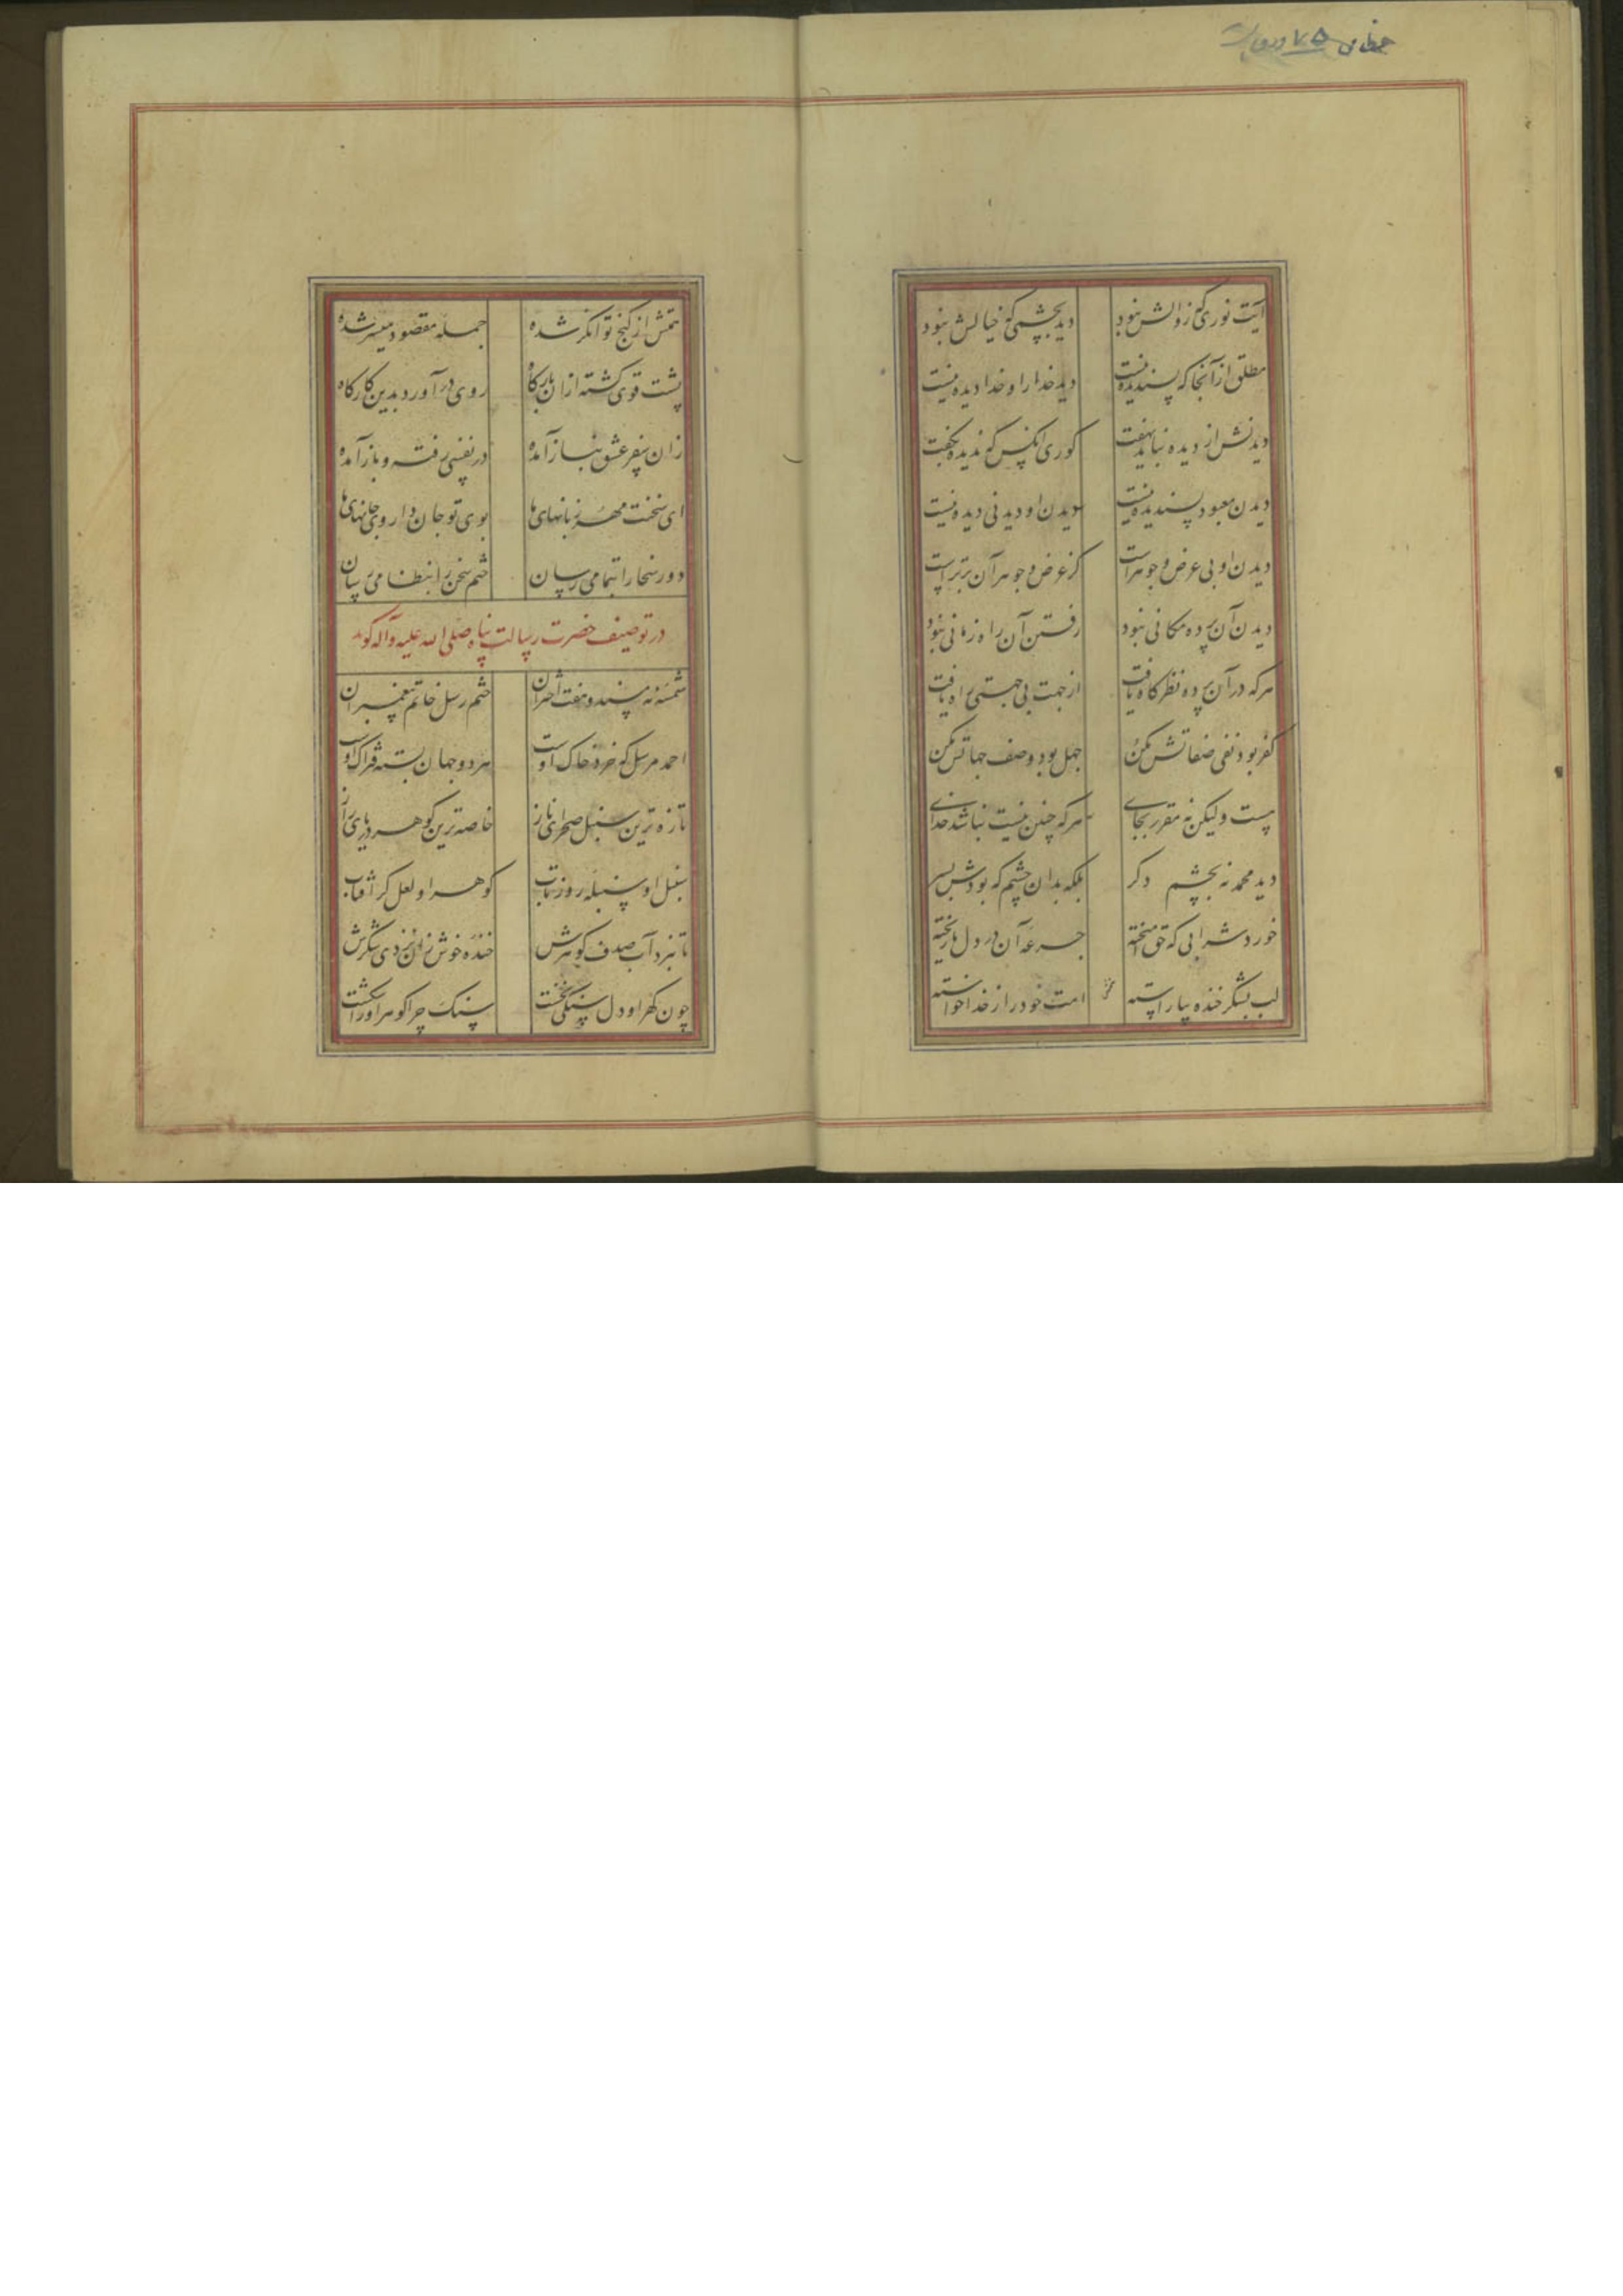 آیت نوری که زوالش نبود دید بچشمی که خیالش نبود
مطلق از آنجا که پسندیده نیست دید خدا را و خدا دیده نیست
دیدنش از دیده نباید نهفت کوری آنکس که ندیده بگفت
دیدن معبود پسندیده نیست دیدن او دیدنی دیده نیست
دیدن او بی عرض و جوهر است کز عرض و جوهر آن برتر است
دیدن آن پرده مکانی نبود رفتن آن راه زمانی نبود
هر که در آن پرده نظرگاه یافت از جهت بی جهتی راه یافت
کفر بود نفی صفاتش مکن جهل بود وصف جهاتش مکن
هست ولیکن نه مقرر بجای هر که چنین نیست نباشد خدای
دید محمد نه بچشم دگر بلکه بدان چشم که بودش بسر
خورد شرابی که حق آمیخته جرعه آن در دل ما ریخته
لب بشکر خنده بیاراسته امت خود را ز خدا خواسته
همتش از گنج توانگر شده جمله مقصود میسر شده
پشت قوی گشته از ان بارگاه روی در آورد بدین کارگاه
زان سفر عشق نیاز آمده در نفسی رفته و باز آمده
ای سخنت مهر زبانهای ما بوی تو جان داروی جانهای ما
دور سخا را بتمامی رسان ختم سخن را بنظامی رسان
در توصیف حضرت رسالت پناه صلی الله علیه وآله گوید
شمسه نه مسند و هفت اختران ختم رسل خاتم پیغمبران
احمد مرسل که خرد خاک اوست هر دو جهان بسته فتراک اوست
تازه ترین سنبل صحرای ناز خاصه ترین گوهر دریای راز
سنبل او سنبله روز تاب گوهر او لعل گر آفتاب
تا نبرد آب صدف گوهرش خنده خوش زان نزدی شکرش
چون گهر او دل سنگی نخست سنگ چرا گوهر او را شکست